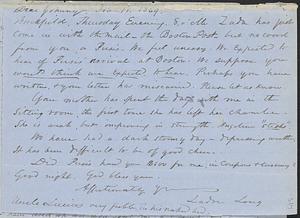 Dear Johnny, Nov. 18. 1869.
Buckfield, Thursday Evening, 8, o'clk. Zadoc has just
come in with the mail - the Boston Post, but no word
from you or Persis. We feel uneasy. We expected to
hear of Persis' arrival at Boston. We suppose you
would think we expected to hear. Perhaps you have
written, & your letter has miscarried. Please let us know
Your mother has spent the day with me in the
Sitting room, the first time she has left her chamber.
She is weak, but improving in strength. Angelina
We have had a dark stormy day - depressing weather
It has been difficult to be of good cheer.
Did Persis hand you $500 for me, in Coupons & currency?
Good night. God bless you.
Affectionately Yr
Zadoc Long
Uncle Lucius very feeble